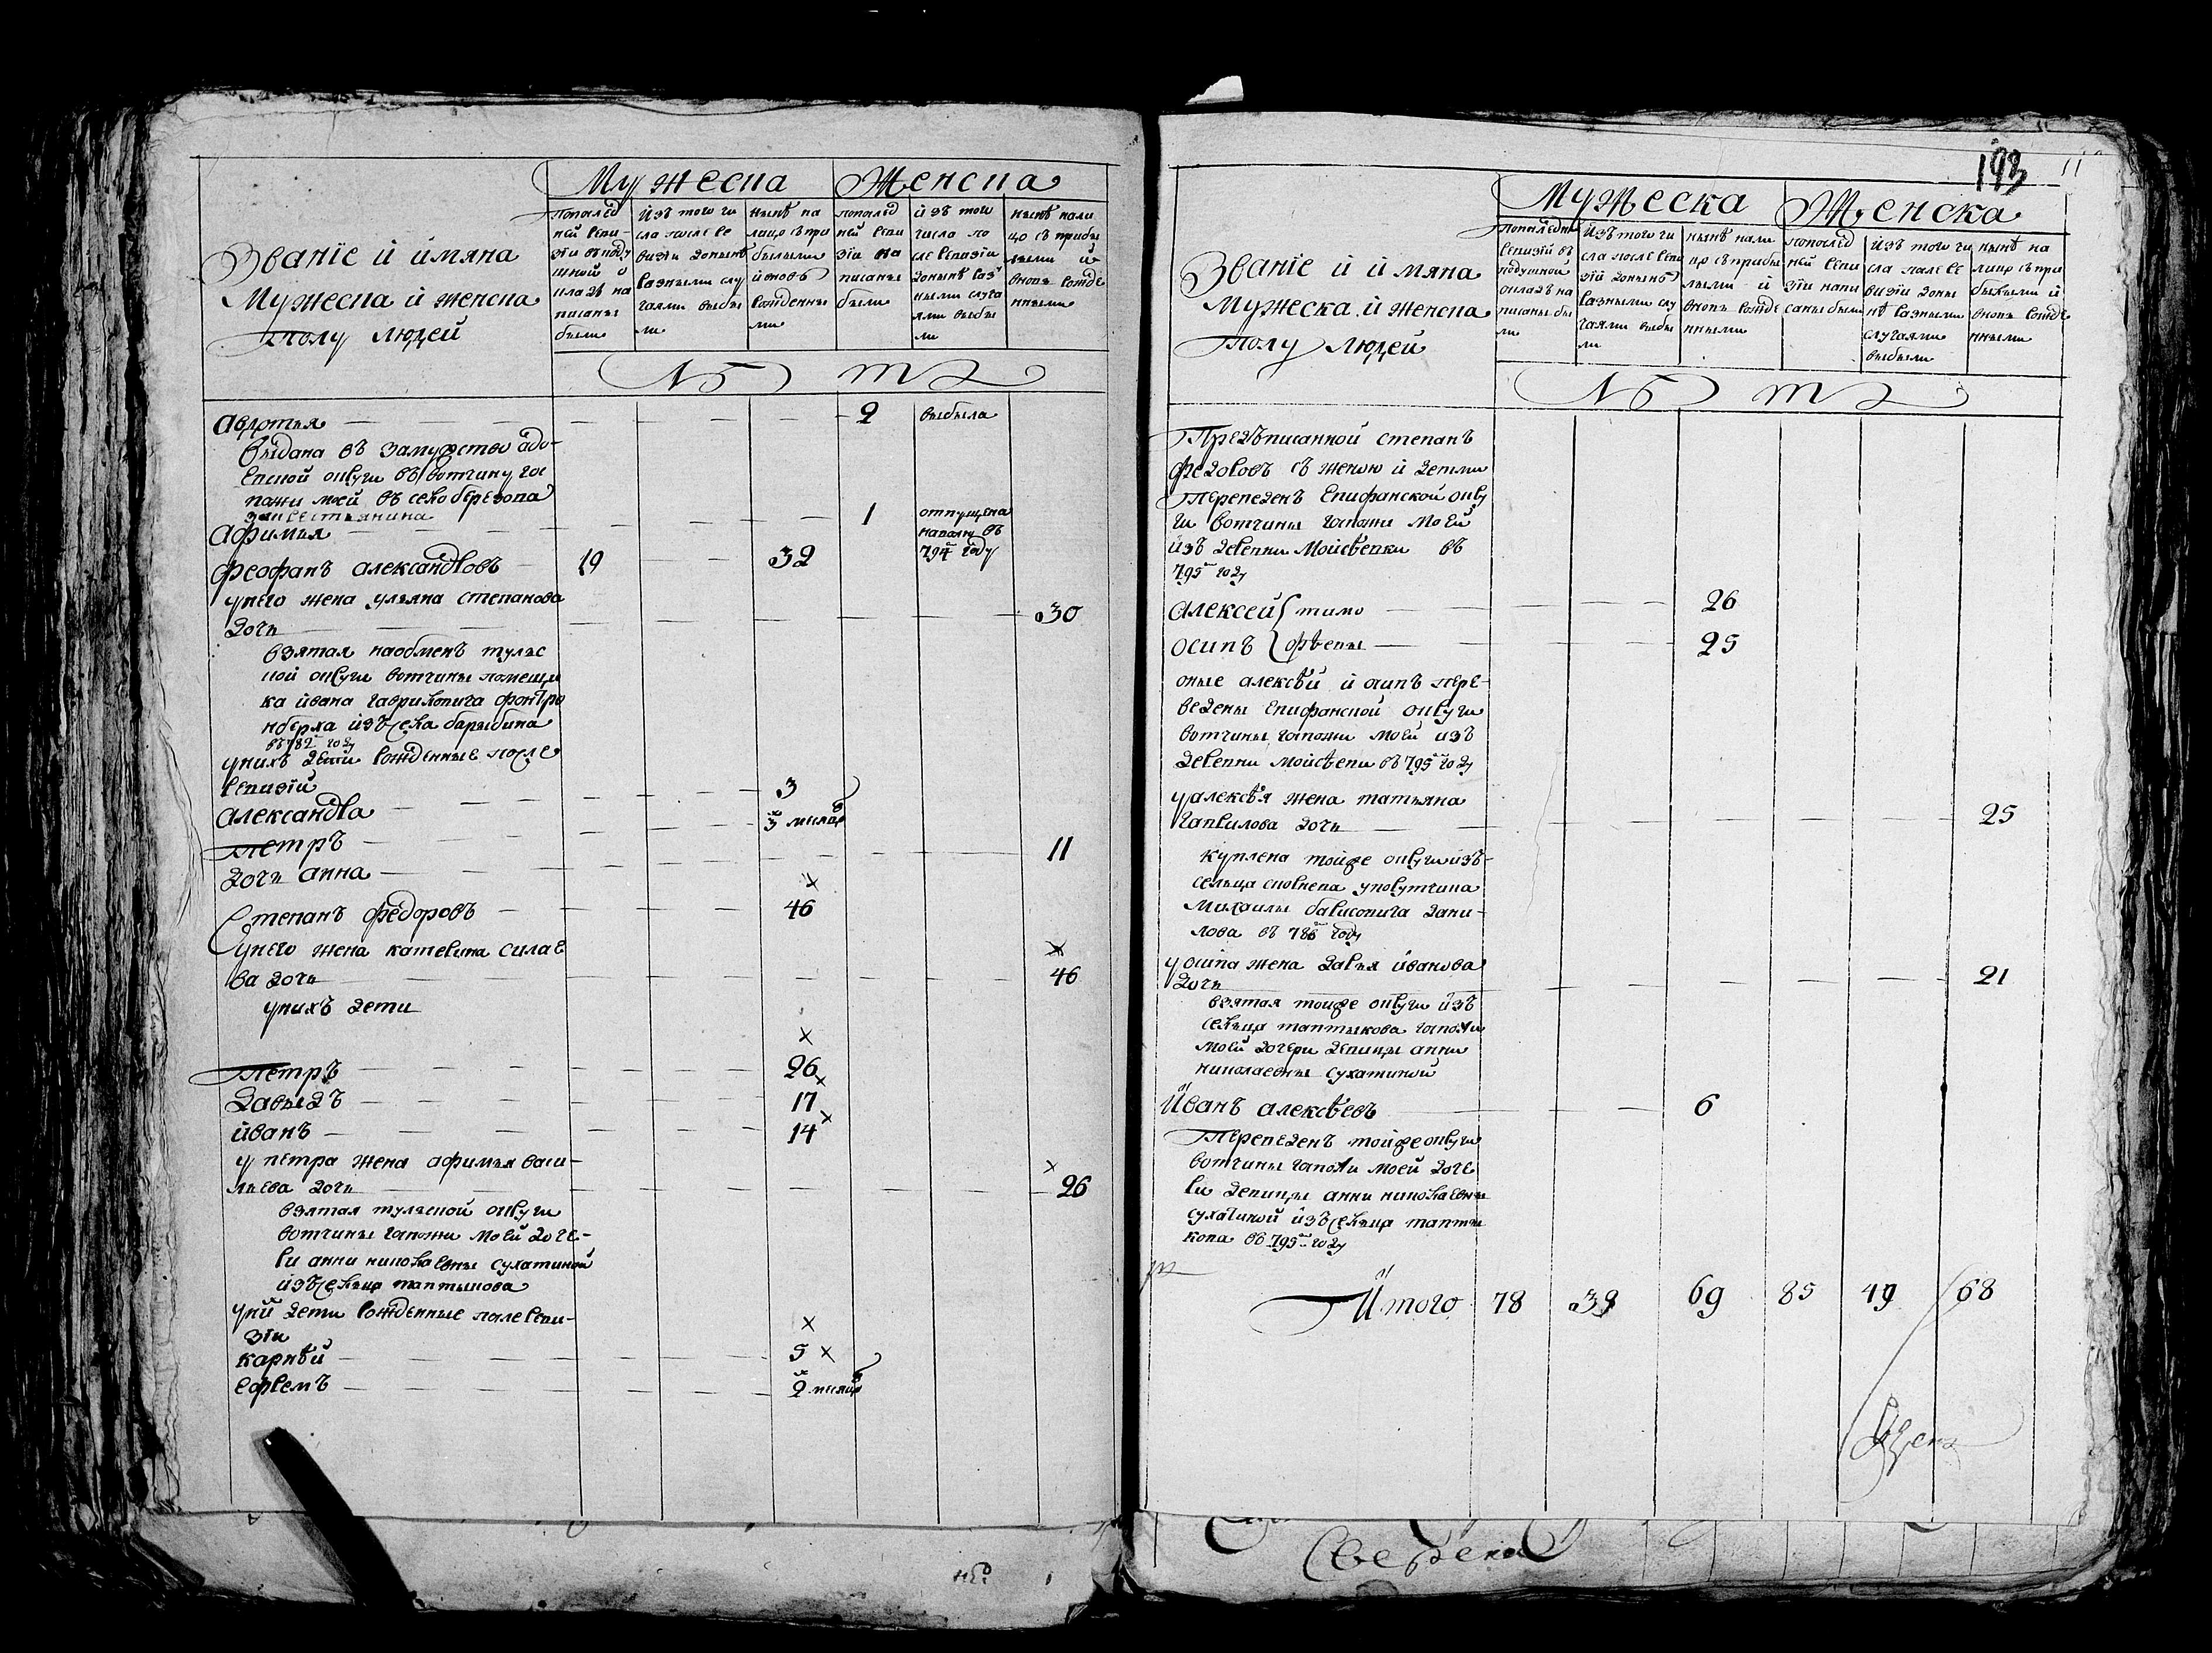 Мужеска Женска
Званїе й ймяна
Мужеска й женска
полу людей
попослед
ней реви-
зїи вподу
шной о
кладъ на
писаны
были
йзъ того чи
сла после ре
визїи донынѣ
разными слу
чаями выбы
ли
нынѣ на
лицо съ при
былыми
йвновь
рожденны
ми
попослед
ней реви
зїи на
писаны
были
йзъ того
числа по
сле ревизїи
донынѣ раз
ными случа
ями выбы
ли
нынѣ нали
цо съ прибы
лыми й
вновь рожде
нными
лѣта
авдотья 2 выбыла
выдана въ замужство одо-
евской округи въ вотчину гос
пожи моей въ село березова
за крестьянина
афимья 1 отпущена
наволю въ
794м году
феофанъ александровъ 19 32
унего жена ульяна степанова
дочь 30
взятая наобменъ тульс
кой округи вотчины помещи
ка йвана гавриловича
йзъ села барыбина
въ 782м году
унихъ дети рожденные после
ревизїи
александра 3
петръ 3х мѣсяцовъ
дочь анна 11
Степанъ федоровъ 46
Унего жена катерина силае
ва дочь 46
унихъ дети
Петръ 26
Давыдъ 17
йванъ 14
у петра жена афимья васи-
льева дочь 26
взятая тульской округи
вотчины госпожи моей доче-
ри анны николаевны сухатиной
йзъ сельца таптыкова
уней дети рожденные после реви-
зїи
карнѣй 5
ефремъ 2х мѣсяцовъ
193
11
Мужеска Женска
Званїе й ймяна
Мужеска й женска
Полу людей
попоследней
ревизїй въ
подушной
окладъ на
писаны бы
ли
йзъ того чи
сла после реви
зїй донынѣ
разными слу
чаями выбы
ли
нынѣ нали
цо съ прибы
лыми й
вновь рожде
нными
попослед
ней реви
зїи напи
саны были
йзъ того чи
сла после ре
визїи доны
нѣ разными
случаями
выбыли
нынѣ на
лицо съ при
былыми й
вновь рожде
нными
лѣта
Предъписанной степанъ
федоровъ съ женою й детми
Переведенъ епифанской окру
ги вотчины госпожи моей
йзъ деревни Мойсѣевки въ
795м году
алексей тимо 26
осипъ фѣевы 25
оные алексѣй й осипъ пере-
ведены епифанской округи
вотчины госпожи моей изъ
деревни мойсѣевки въ 795м году
уалексѣя жена татьяна
гаврилова дочь 25
куплена тойже округи изъ-
сельца
Михаилы барисовича дани-
лова въ 786м году
уосипа жена дарья йванова
дочь 21
взятая тойже округи йзъ
сельца таптыкова госпожи
моей дочери девицы анны
николаевны сухатиной
Йванъ алексѣевъ 6
Переведенъ тойже округи
вотчины госпожи моей доче
ри девицы анны николаевны
сухатиной йзъ сельца тапты
кова въ 795м году
Йтого 78 39 69 85 49 68